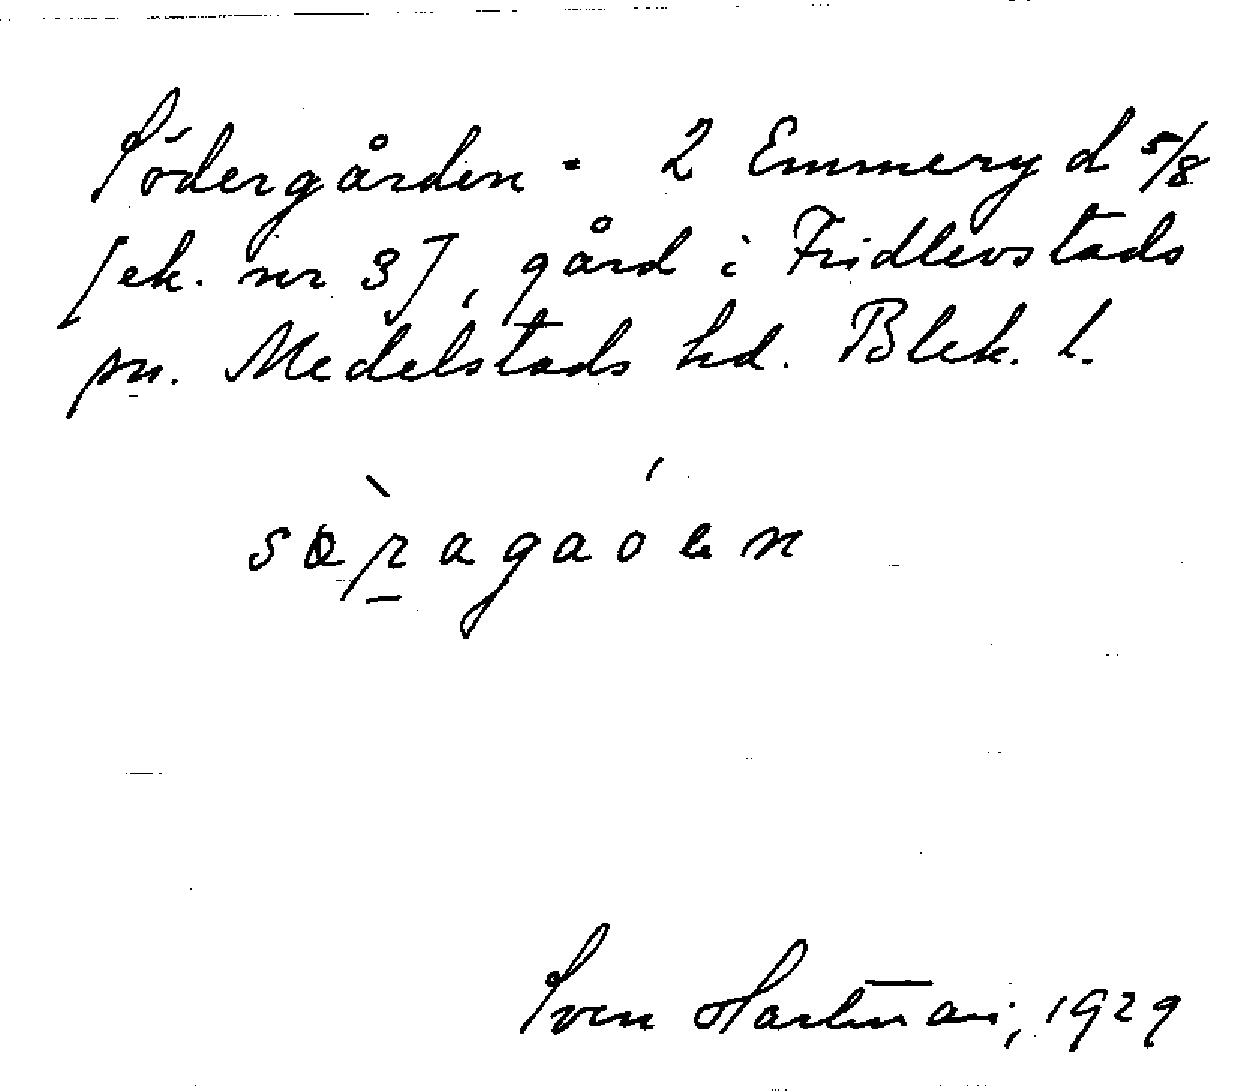 Södergården. 2 Emmeryd 5/8
[ek. nr 3], gård i Fridlevstads
sn. Medelstads hd. Blek. l.
Sven Hartman, 1929